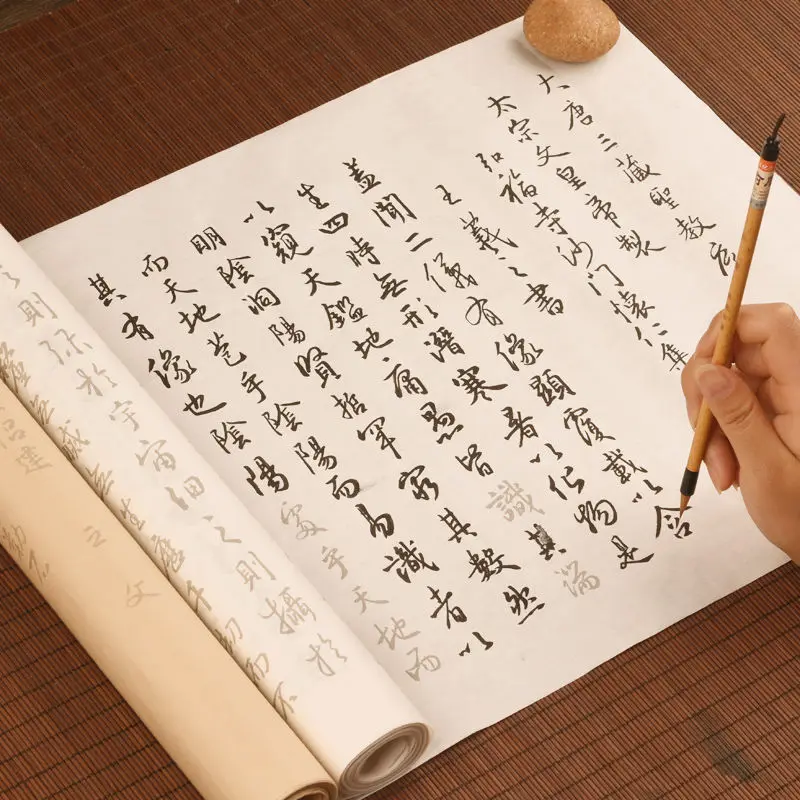 大唐三藏聖教序
太宗文皇帝製
弘福寺沙門懷仁集
王羲之書
蓋聞二儀有像顯覆載以含
生四時無形潛寒暑以化物是
以窺天鑑地庸愚皆識其端
明陰洞陽賢哲罕窮其數然
而天地苞乎陰陽而易識者以
其有像也陰陽處乎天地而
之則弥於宇宙之則攝於
無滅無生歷千劫而不